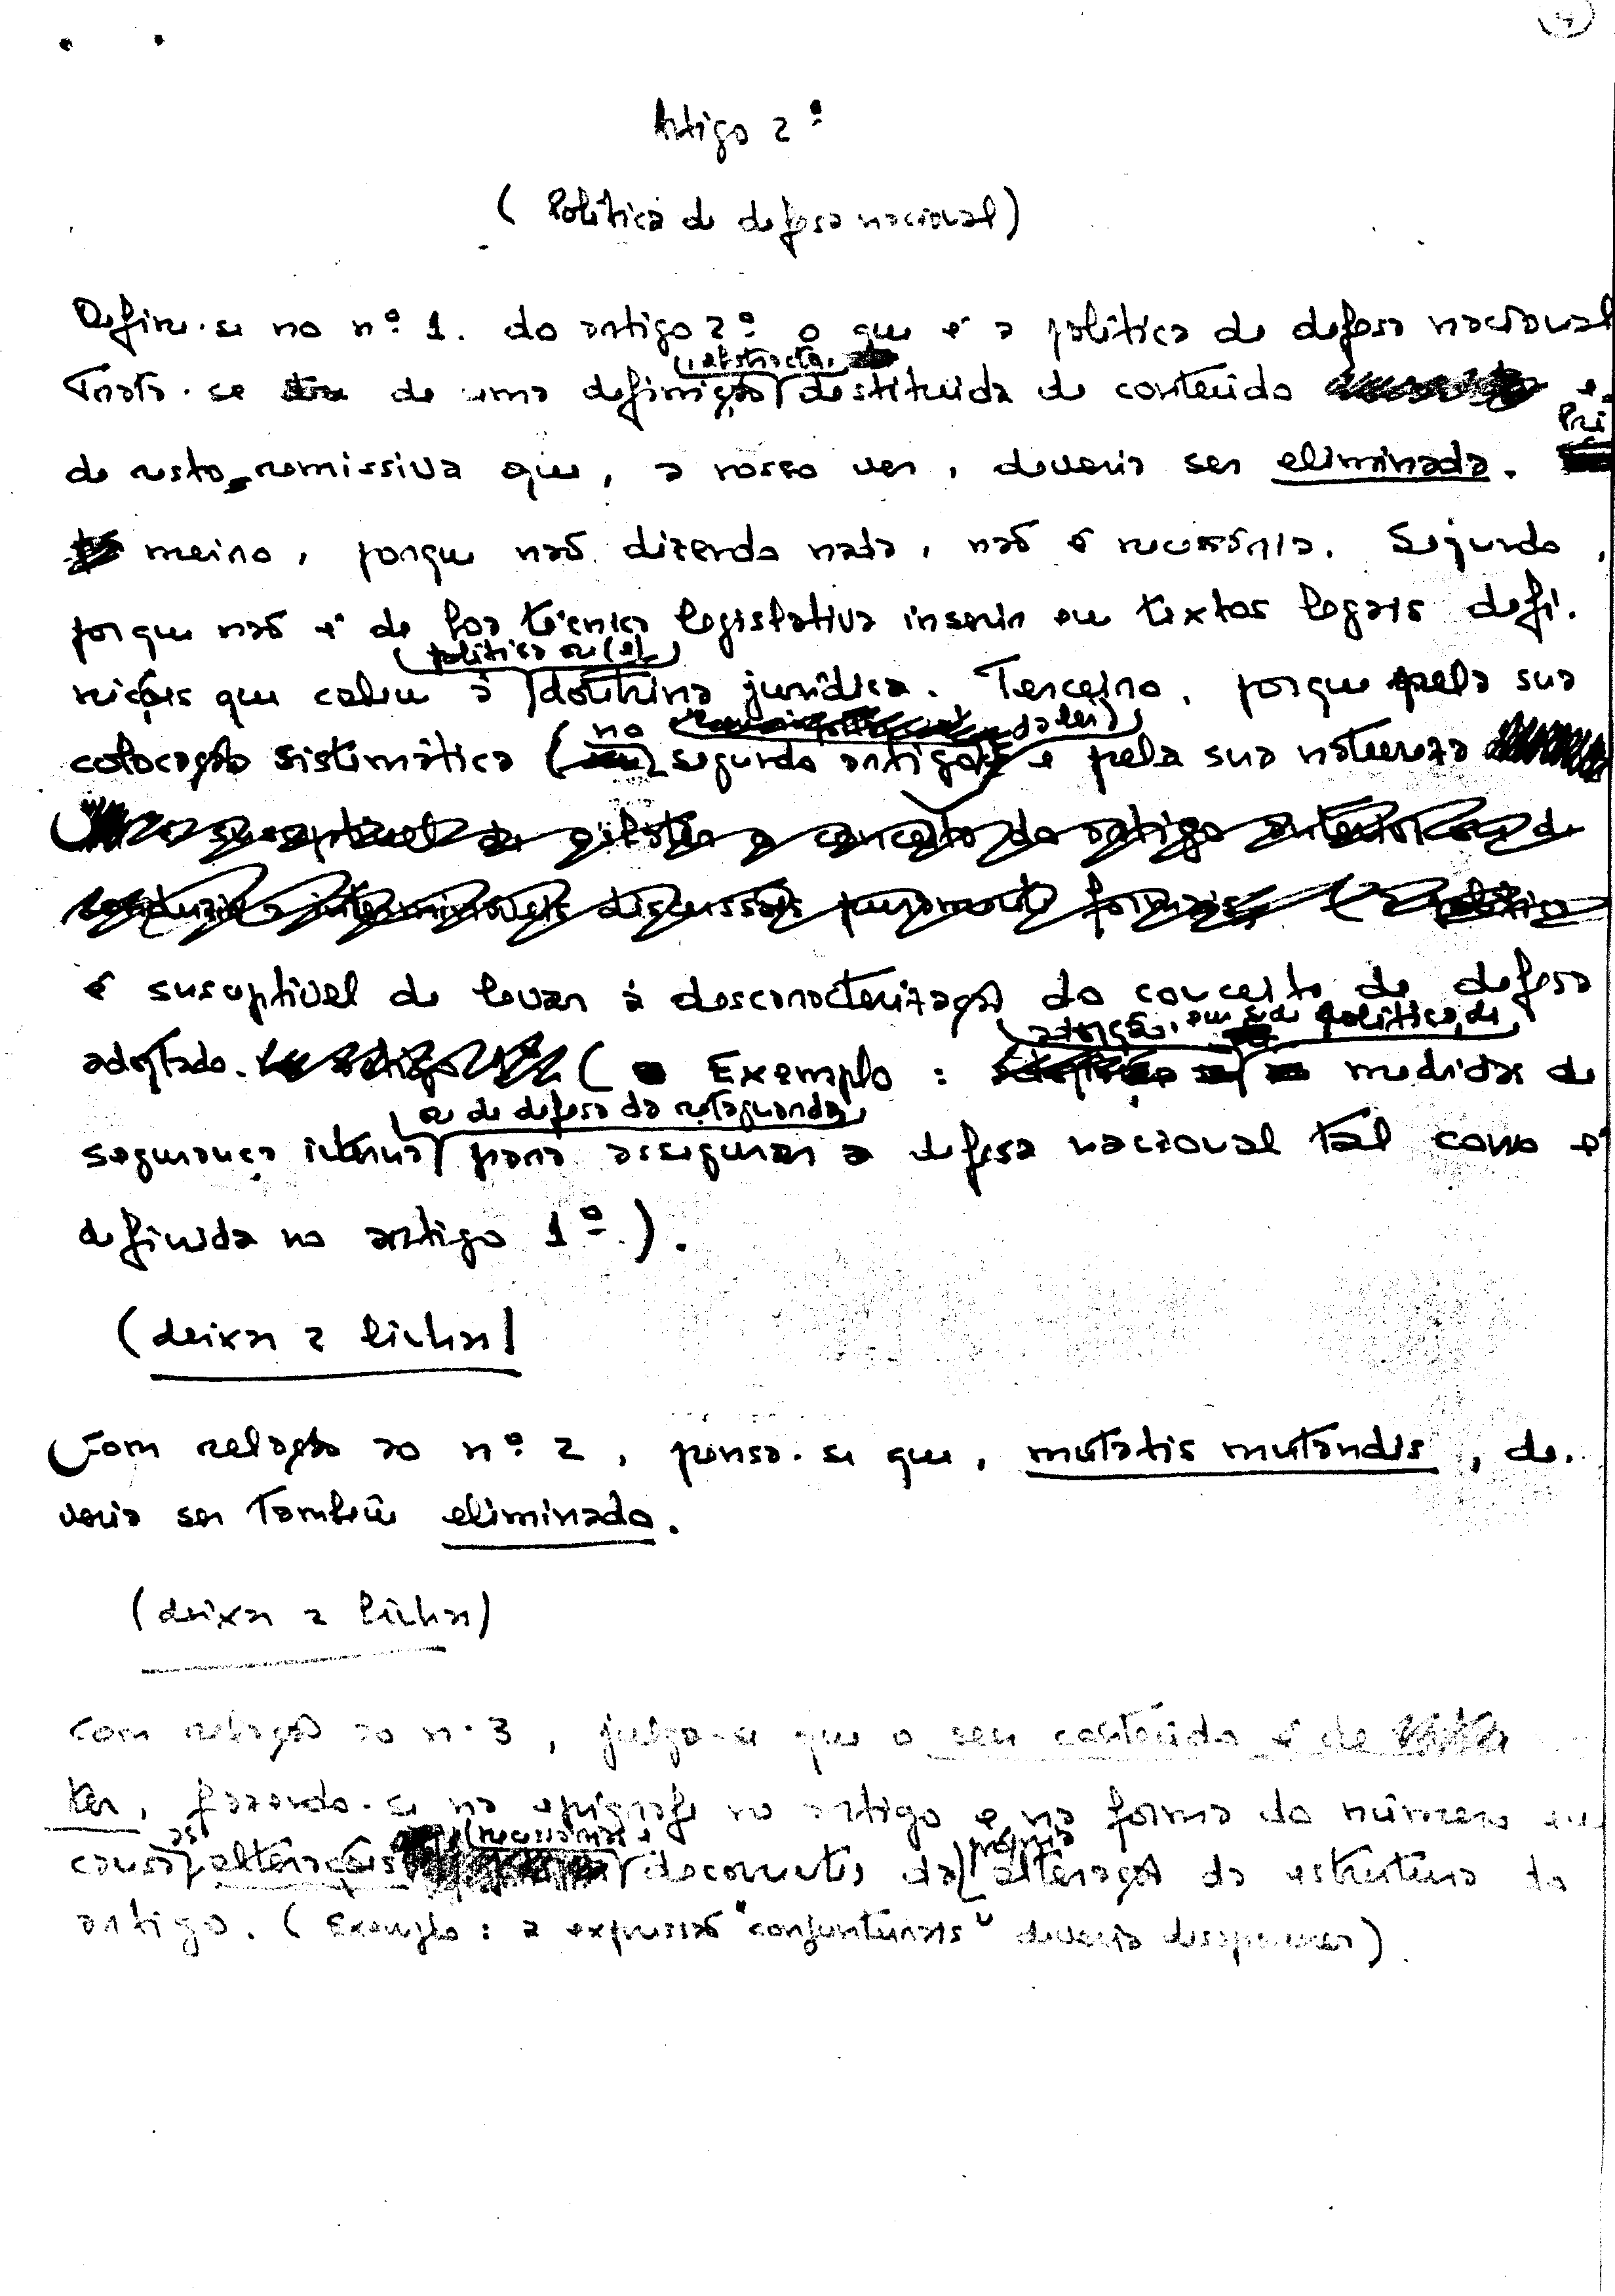 Artigo 2º
(Política de defesa nacional)
Define-se no nº 1. do artigo 2º o que é a política de defesa nacional
(abstracta,
Trata-se de uma definição destituída de conteúdo e,
Pri
de resto, remissiva que, a nosso ver, deveria ser eliminada.
meiro, porque não dizendo nada, não é necessária. Segundo,
porque não é de boa técnica legislativa inserir em textos legais defi-
(política ou (e)
nições que cabem à doutrina jurídica. Terceiro, porque pela sua
no da lei)
colocação sistemática (segundo artigo e pela sua natureza
susceptível de o conceito do artigo anterior e de
intermináveis discussões puramente formais
é susceptível de levar à descaracterização do conceito de defesa
política de
adoptado. (Exemplo: medidas de
e de defesa da retaguarda
segurança interna para assegurar a defesa nacional tal como é
definida no artigo 1º.).
(deixar 2 linhas)
Com relação ao nº 2, pensa-se que, mutatis mutandis, de-
veria ser também eliminado.
(deixar 2 linhas)
Com relação ao nº 3, julga-se que o seu conteúdo é de
ter, fazendo-se na epígrafe no artigo e na forma do número em
as (necessárias e própria
causa alterações decorrentes da alteração da estrutura do
artigo. (Exemplo: a expressão "conjunturais" deveria desaparecer).